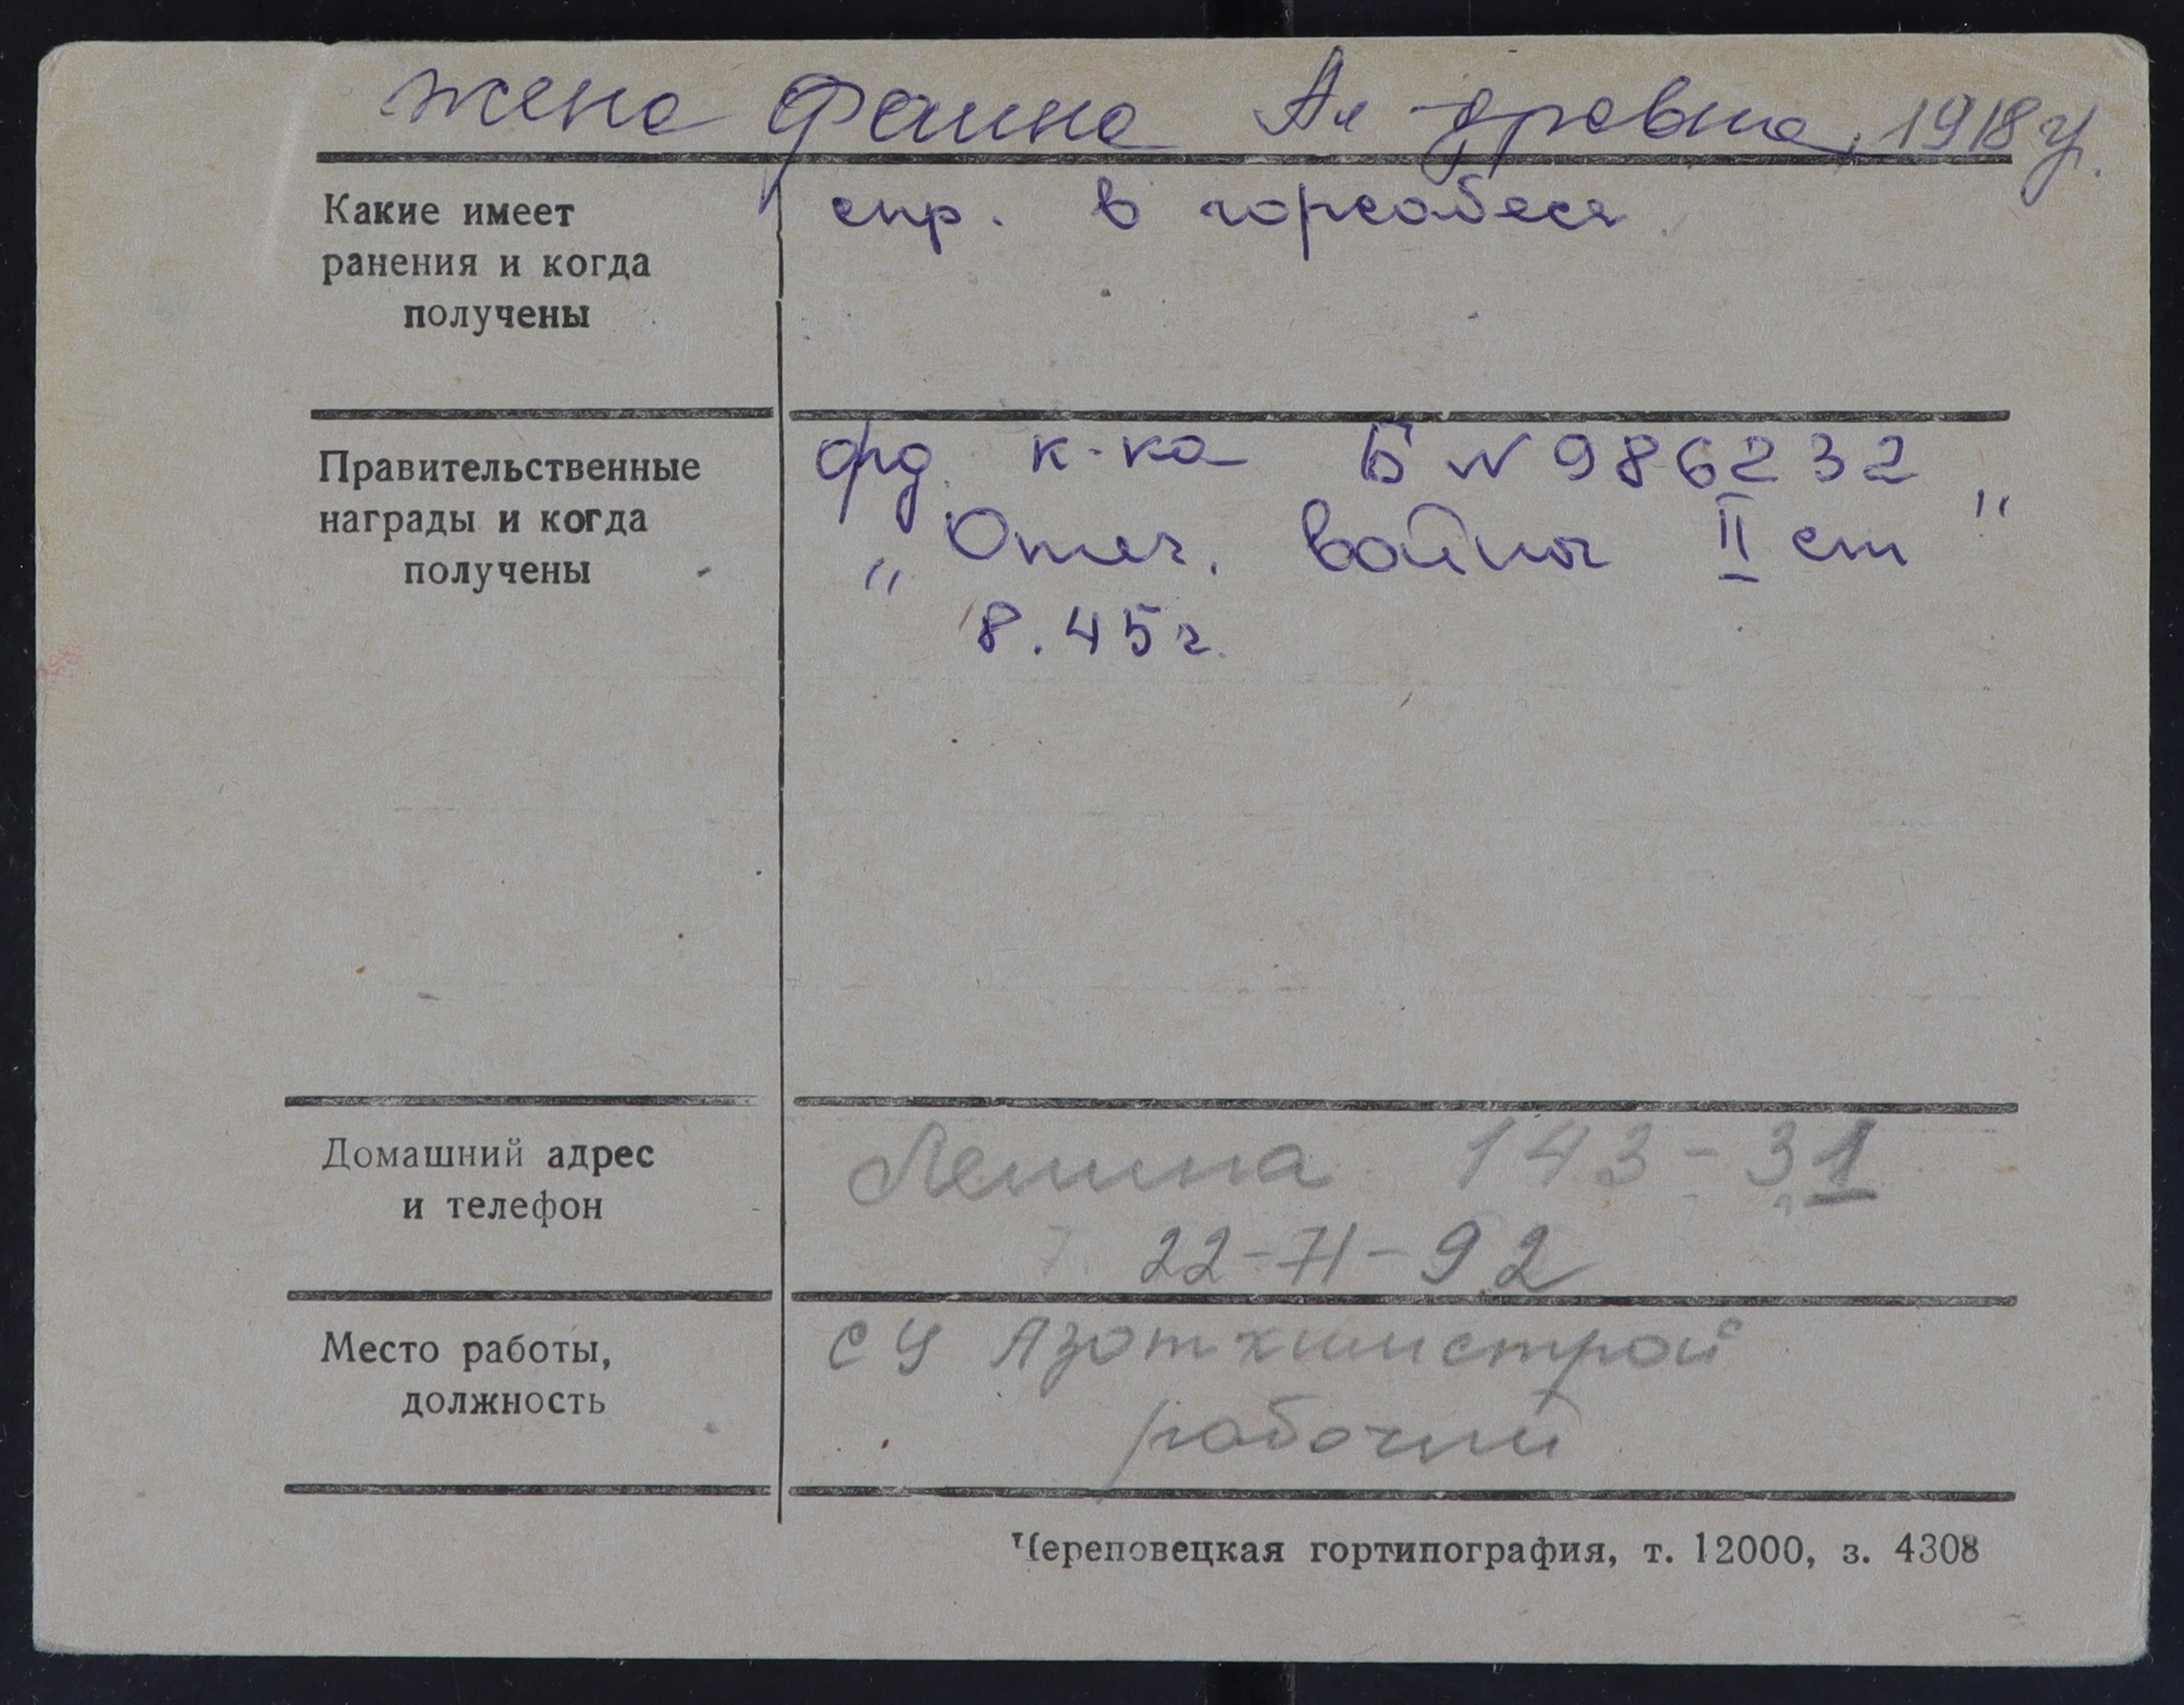 жена Фаина Ал-дровна, 1918 г.
Какие имеет
ранения и когда
получены
спр. в горсобесе.
Правительственные
награды и когда
получены
орд. к-ка Б № 986232
„Отеч. войны II ст"
8.45г.
Домашний адрес
и телефон
Ленина 143-31
т. 22-71-92
Место работы,
должность
СУ Азотхимстрой
рабочий
Череповецкая гортипография, т. 12000, з. 4308